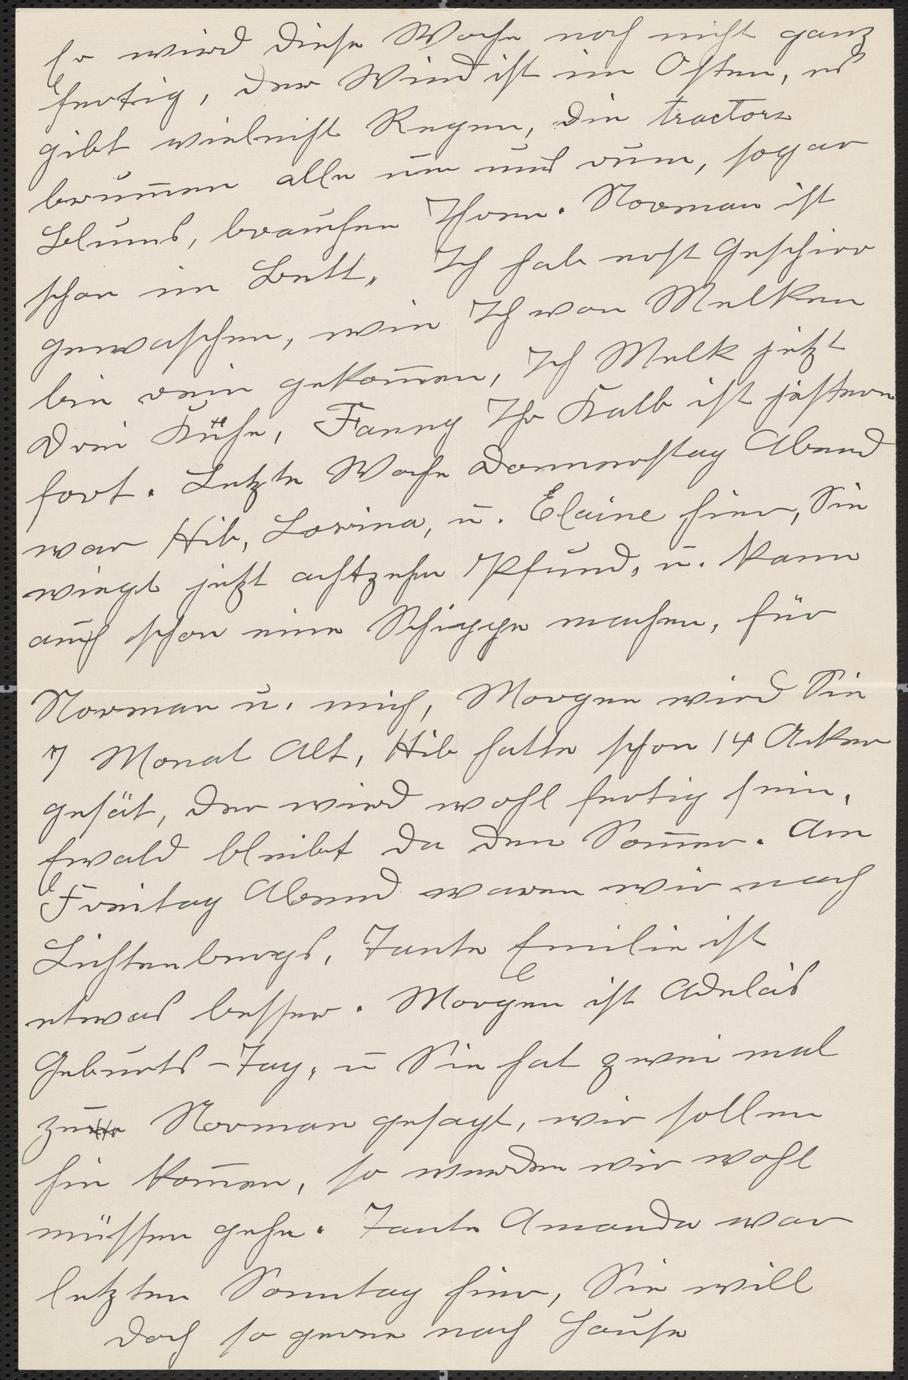 Er wird diese Woche noch nicht ganz
fertig, der Wind ist im Osten, es
gibt vieleicht Regen, die tractors
brum̅en alle um und rum, sogar
Blums, brauchen Ihren. Norman ist
schon im Bett, Ich hab erst Geschirr
gewaschen, wie Ich von Melken
bin rein gekom̅en, Ich Melk jetzt
drei Kühe, Fanny Ihr Kalb ist jestern
fort. Letzte Woche Donnerstag Abend
war Hib, Lorina, u. Elaine hier, Sie
wiegt jetzt achtzehn Pfund, u. kann
auch schon eine Schippe machen, für
Norman u. mich, Morgen wird Sie
7 Monat Alt, Hib hatte schon 14 Acker
gesät, der wird wohl fertig sein,
Ewald bleibt da den Som̅er. Am
Freitag Abend waren wir nach
Lichtenbergs, Tante Emilie ist
etwas besser. Morgen ist Adelas
Geburts-Tag, u Sie hat zwei mal
zu Norman gesagt, wir sollen
hin kom̅en, so werden wir wohl
müssen gehe. Tante Amanda war
letzten Sonntag hier, Sie will
doch so gerne nach Hause